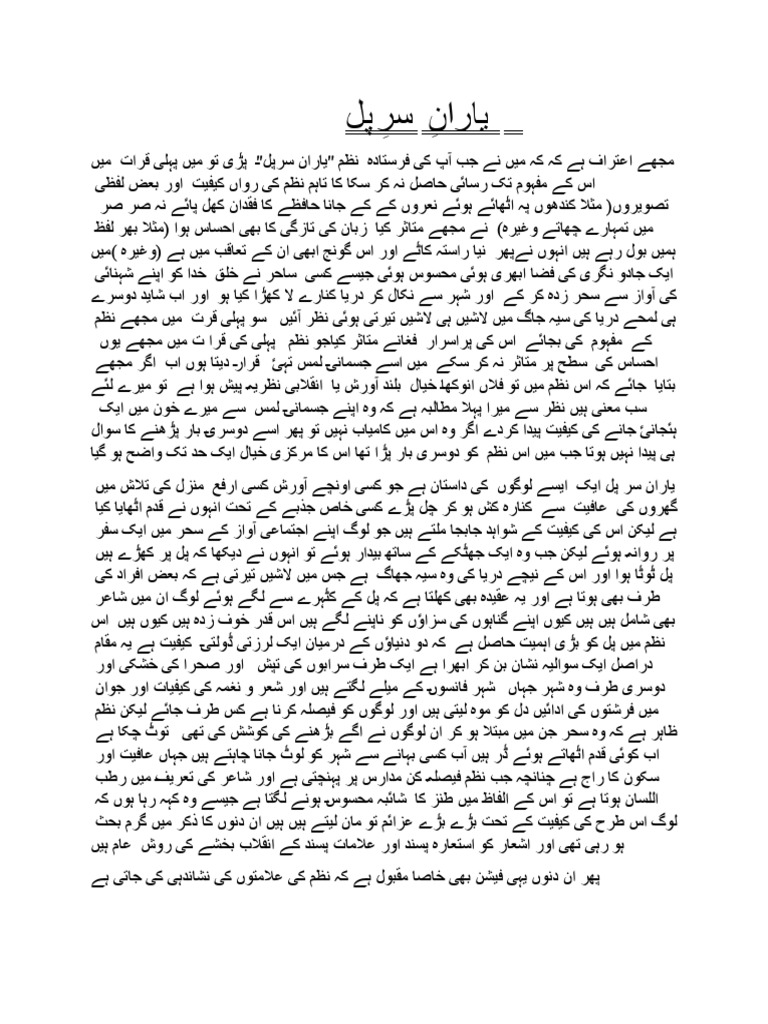 یارانِ سرِپل
مجھے اعتراف ہے کہ کہ میں نے جب آپ کی فرستادہ نظم "یاران سرپل"۔ پڑی تو میں پہلی قرات میں
اس کے مفہوم تک رسائی حاصل نہ کر سکا کا تاہم نظم کی رواں کیفیت اور بعض لفظی
تصویروں( مثلا کندھوں پہ اٹھائے ہوئے نعروں کے کے جانا حافظے کا فقدان کھل پائے نہ صر صر
میں تمہارے چھاتے وغیرہ) نے مجھے متاثر کیا زبان کی تازگی کا بھی احساس ہوا (مثلا بھر لفظ
ہمیں بول رہے ہیں انہوں نےپھر نیا راستہ کاٹے اور اس گونج ابھی ان کے تعاقب میں ہے (وغیرہ )میں
ایک جادو نگری کی فضا ابھری ہوئی محسوس ہوئی جیسے کسی ساحر نے خلق خدا کو اپنے شہنائی
کی آواز سے سحر زدہ کر کے اور شہر سے نکال کر دریا کنارے لا کھڑا کیا ہو اور اب شاید دوسرے
ہی لمحے دریا کی سیہ جاگ میں لاشیں ہی لاشیں تیرتی ہوئی نظر آئیں سو پہلی قرت میں مجھے نظم
کے مفہوم کی بجائے اس کی پراسرار فغانے متاثر کیاجو نظم پہلی کی قرا ت میں مجھے یوں
احساس کی سطح پر متاثر نہ کر سکے میں اسے جسمانی۔ لمس تہئ قرار۔ دیتا ہوں اب اگر مجھے
بتایا جائے کہ اس نظم میں تو فلاں انوکھا۔ خیال بلند آورش یا انقلابی نظریہ۔ پیش ہوا ہے تو میرے لئے
سب معنی ہیں نظر سے میرا پہلا مطالبہ ہے کہ وہ اپنے جسمانی۔ لمس سے میرے خون میں ایک
ہئجانئ جانے کی کیفیت پیدا کردے اگر وہ اس میں کامیاب نہیں تو پھر اسے دوسری۔ بار پڑ ھنے کا سوال
ہی پیدا نہیں ہوتا جب میں اس نظم کو دوسری بار پڑ ا تھا اس کا مرکزی خیال ایک حد تک واضح ہو گیا
یاران سر پل ایک ایسے لوگوں کی داستان ہے جو کسی اونچے آورش کسی ارفع منزل کی تلاش میں
گھروں کی عافیت سے کنارہ کش ہو کر چل پڑے کسی خاص جذبے کے تحت انہوں نے قدم اٹھایا کیا
ہے لیکن اس کی کیفیت کے شواہد جابجا ملتے ہیں جو لوگ اپنے اجتماعی آواز کے سحر میں ایک سفر
پر روانہ۔ ہوئے لیکن جب وہ ایک جھٹکے کے ساتھ بیدار ہوئے تو انہوں نے دیکھا کہ پل پر کھڑے ہیں
پل ٹوٹا ہوا اور اس کے نیچے دریا کی وہ سیہ جھاگ ہے جس میں لاشیں تیرتی ہے کہ بعض افراد کی
طرف بھی ہوتا ہے اور یہ عقیدہ بھی کھلتا ہے کہ پل کے کٹہرے سے لگے ہوئے لوگ ان میں شاعر
بھی شامل ہیں ہیں کیوں اپنے گناہوں کی سزاؤں کو ناپنے لگے ہیں اس قدر خوف زدہ ہیں کیوں ہیں اس
نظم میں پل کو بڑی اہمیت حاصل ہے کہ دو دنیاؤں کے درمیان ایک لرزتی ڈولتی۔ کیفیت ہے یہ مقام
دراصل ایک سوالیہ نشان بن کر ابھرا ہے ایک طرف سرابوں کی تپش اور صحرا کی خشکی اور
دوسری طرف وہ شہر جہاں شہر فانسوں۔ کے میلے لگتے ہیں اور شعر و نغمہ کی کیفیات اور جوان
میں فرشتوں کی ادائیں دل کو موہ لیتی ہیں اور لوگوں کو فیصلہ کرنا ہے کس طرف جائے لیکن نظم
ظاہر ہے کہ وہ سحر جن میں مبتلا ہو کر ان لوگوں نے اگے بڑ ھنے کی کوشش کی تھی ٹوٹ چکا ہے
اب کوئی قدم اٹھاتے ہوئے ڈر ہیں آب کسی بہانے سے شہر کو لوٹ جانا چاہتے ہیں جہاں عافیت اور
سکون کا راج ہے چنانچہ جب نظم فیصلہ۔ کن مدارس پر پہنچتی ہے اور شاعر کی تعریف۔ میں رطب
اللسان ہوتا ہے تو اس کے الفاظ میں طنز کا شائبہ محسوس۔ ہونے لگتا ہے جیسے وہ کہہ رہا ہوں کہ
لوگ اس طرح کی کیفیت کے تحت بڑے بڑے عزائم تو مان لیتے ہیں ہیں ان دنوں کا ذکر میں گرم بحث
ہو رہی تھی اور اشعار کو استعارہ پسند اور علامات پسند کے انقلاب بخشے کی روش عام ہیں
پھر ان دنوں یہی فیشن بھی خاصا مقبول ہے کہ نظم کی علامتوں کی نشاندہی کی جاتی ہے